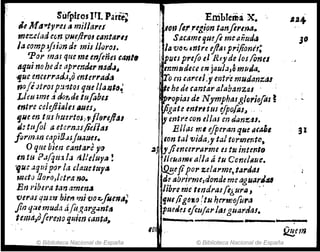 Suspiros III. Parte,
de Martyres a millares
mezclad con vuestros cantares
la compassion de mis lloros.
Por mas que me enseñes canto
aqui no he de aprender nada,
que encerrada, ò enterrada
no sè otros puntos que llanto;
Lleuame a donde tu sabes
entre celestiales aues,
que en tus huertos, y florestas
de tu sol a eternas siestas
forman capillas suaues.
O que bien cantarè yo
en tu Pasqua la Alleluya!
que aqui por la clausura
meto lloro, letra no.
En ribera tan amena
veras quan bien mi voz suena;
sin que muda à su garganta
tema, ò sereno quien canta,
Emblema X. 224
con ser region tan serena.
Sacame que se me añuda 30
la voz entre estas prisiones;
pues preso el Rey de los sones
enmudece en jaula, ò muda.
To en carcel, y entre mudanzas
te he de cantar alabanzas
propias de Nymphas gloriosas?
sigate entre tus esposas,
y entre con ellas en danzas.
Ellas me esperan que acabe 31
con tal vida, y tal tormento,
y si encerrarme es tu intento
lleuame alla à tu Conclaue.
Que si por zelarme, tardas
de abrirme, donde me aguardas
libre me tendras segura,
que si gozo tu hermosura
puedes escusar las guardas.
Quem
© Biblioteca Nacional de España
© Biblioteca Nacional de España